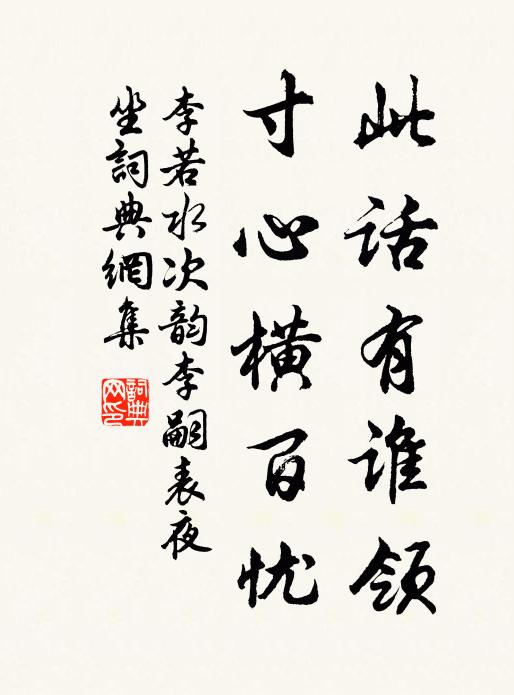 此話有誰領
寸心橫百忧
李若水次韵李嗣表夜
坐詞典網集
詞典网印